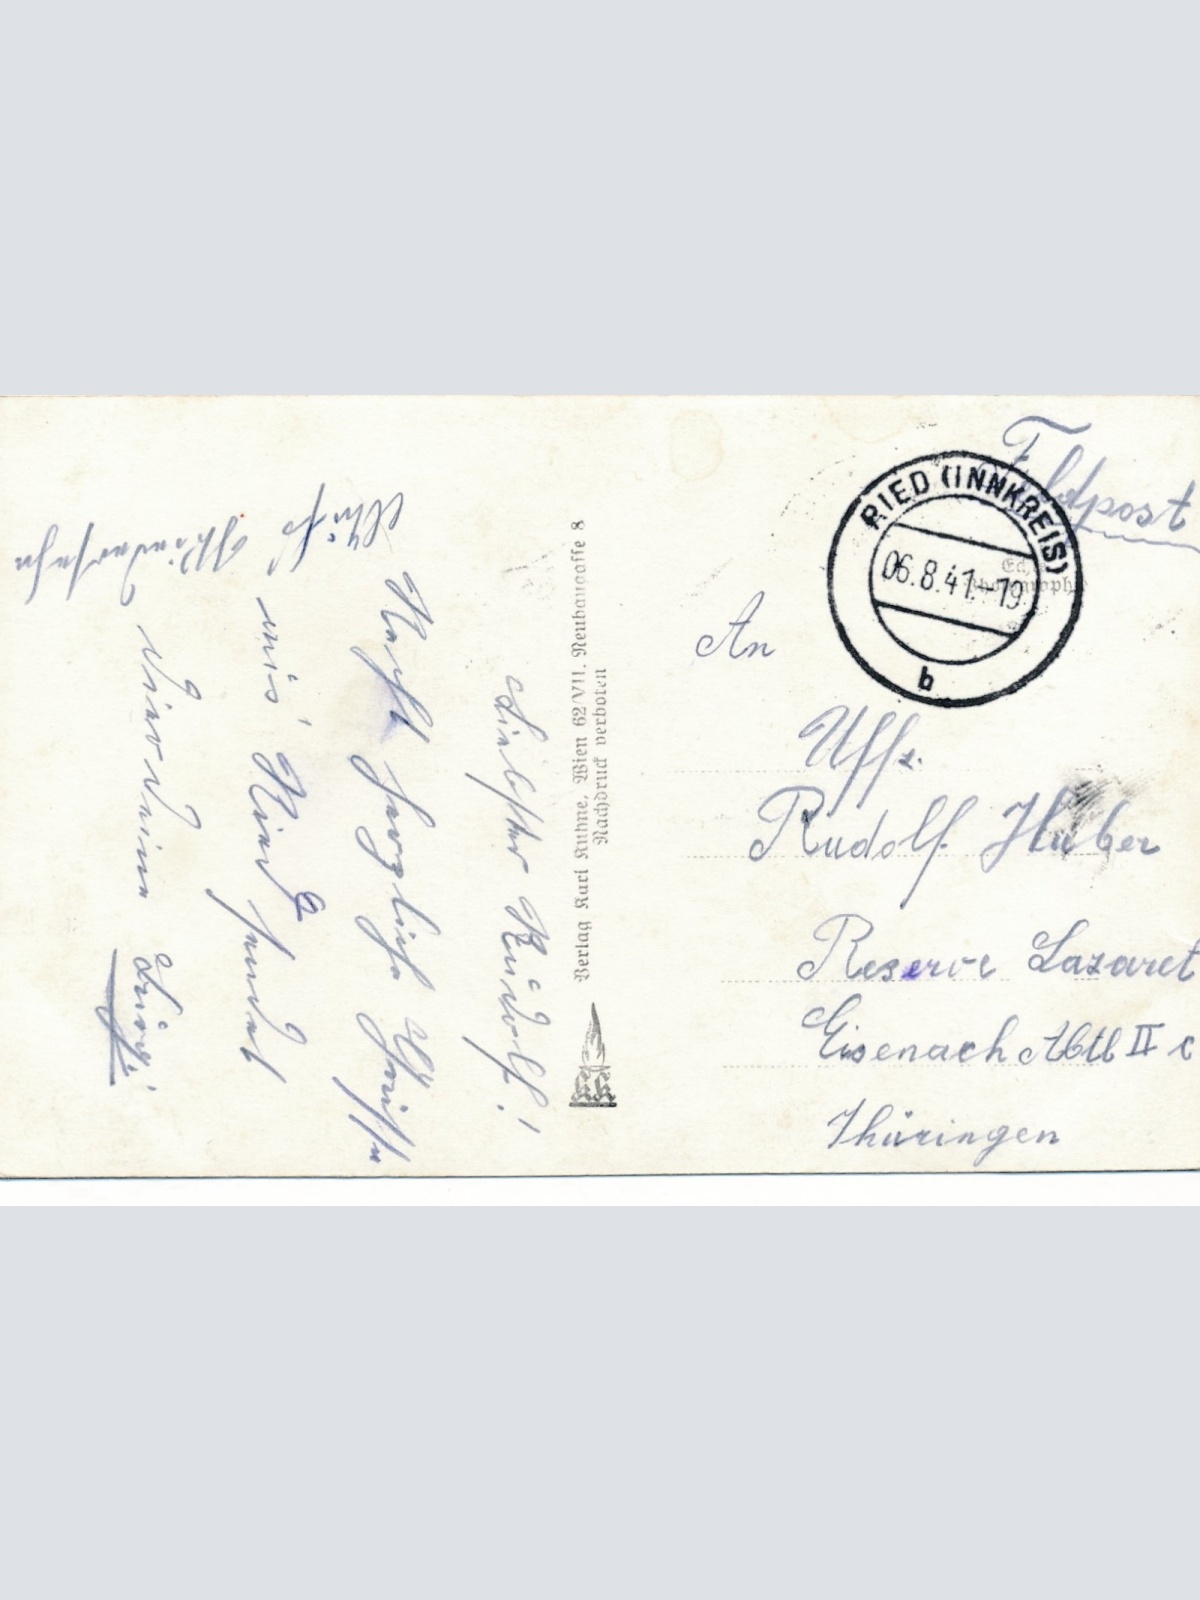 Feldpost
RIED (INNKREIS)
06.8.41.-19
b
An
Uffz.
Rudolf Huber
Reserve Lazaret
Eisenach Abtl II c
Thüringen
Verlag Karl Kühne, Wien 62/VII. Neubaugasse 8
Nachdruck verboten
KK
Liebster Rudolf!
Recht herzliche Grüsse
aus Ried sendet
Dir Deine
Auf
Wiedersehn